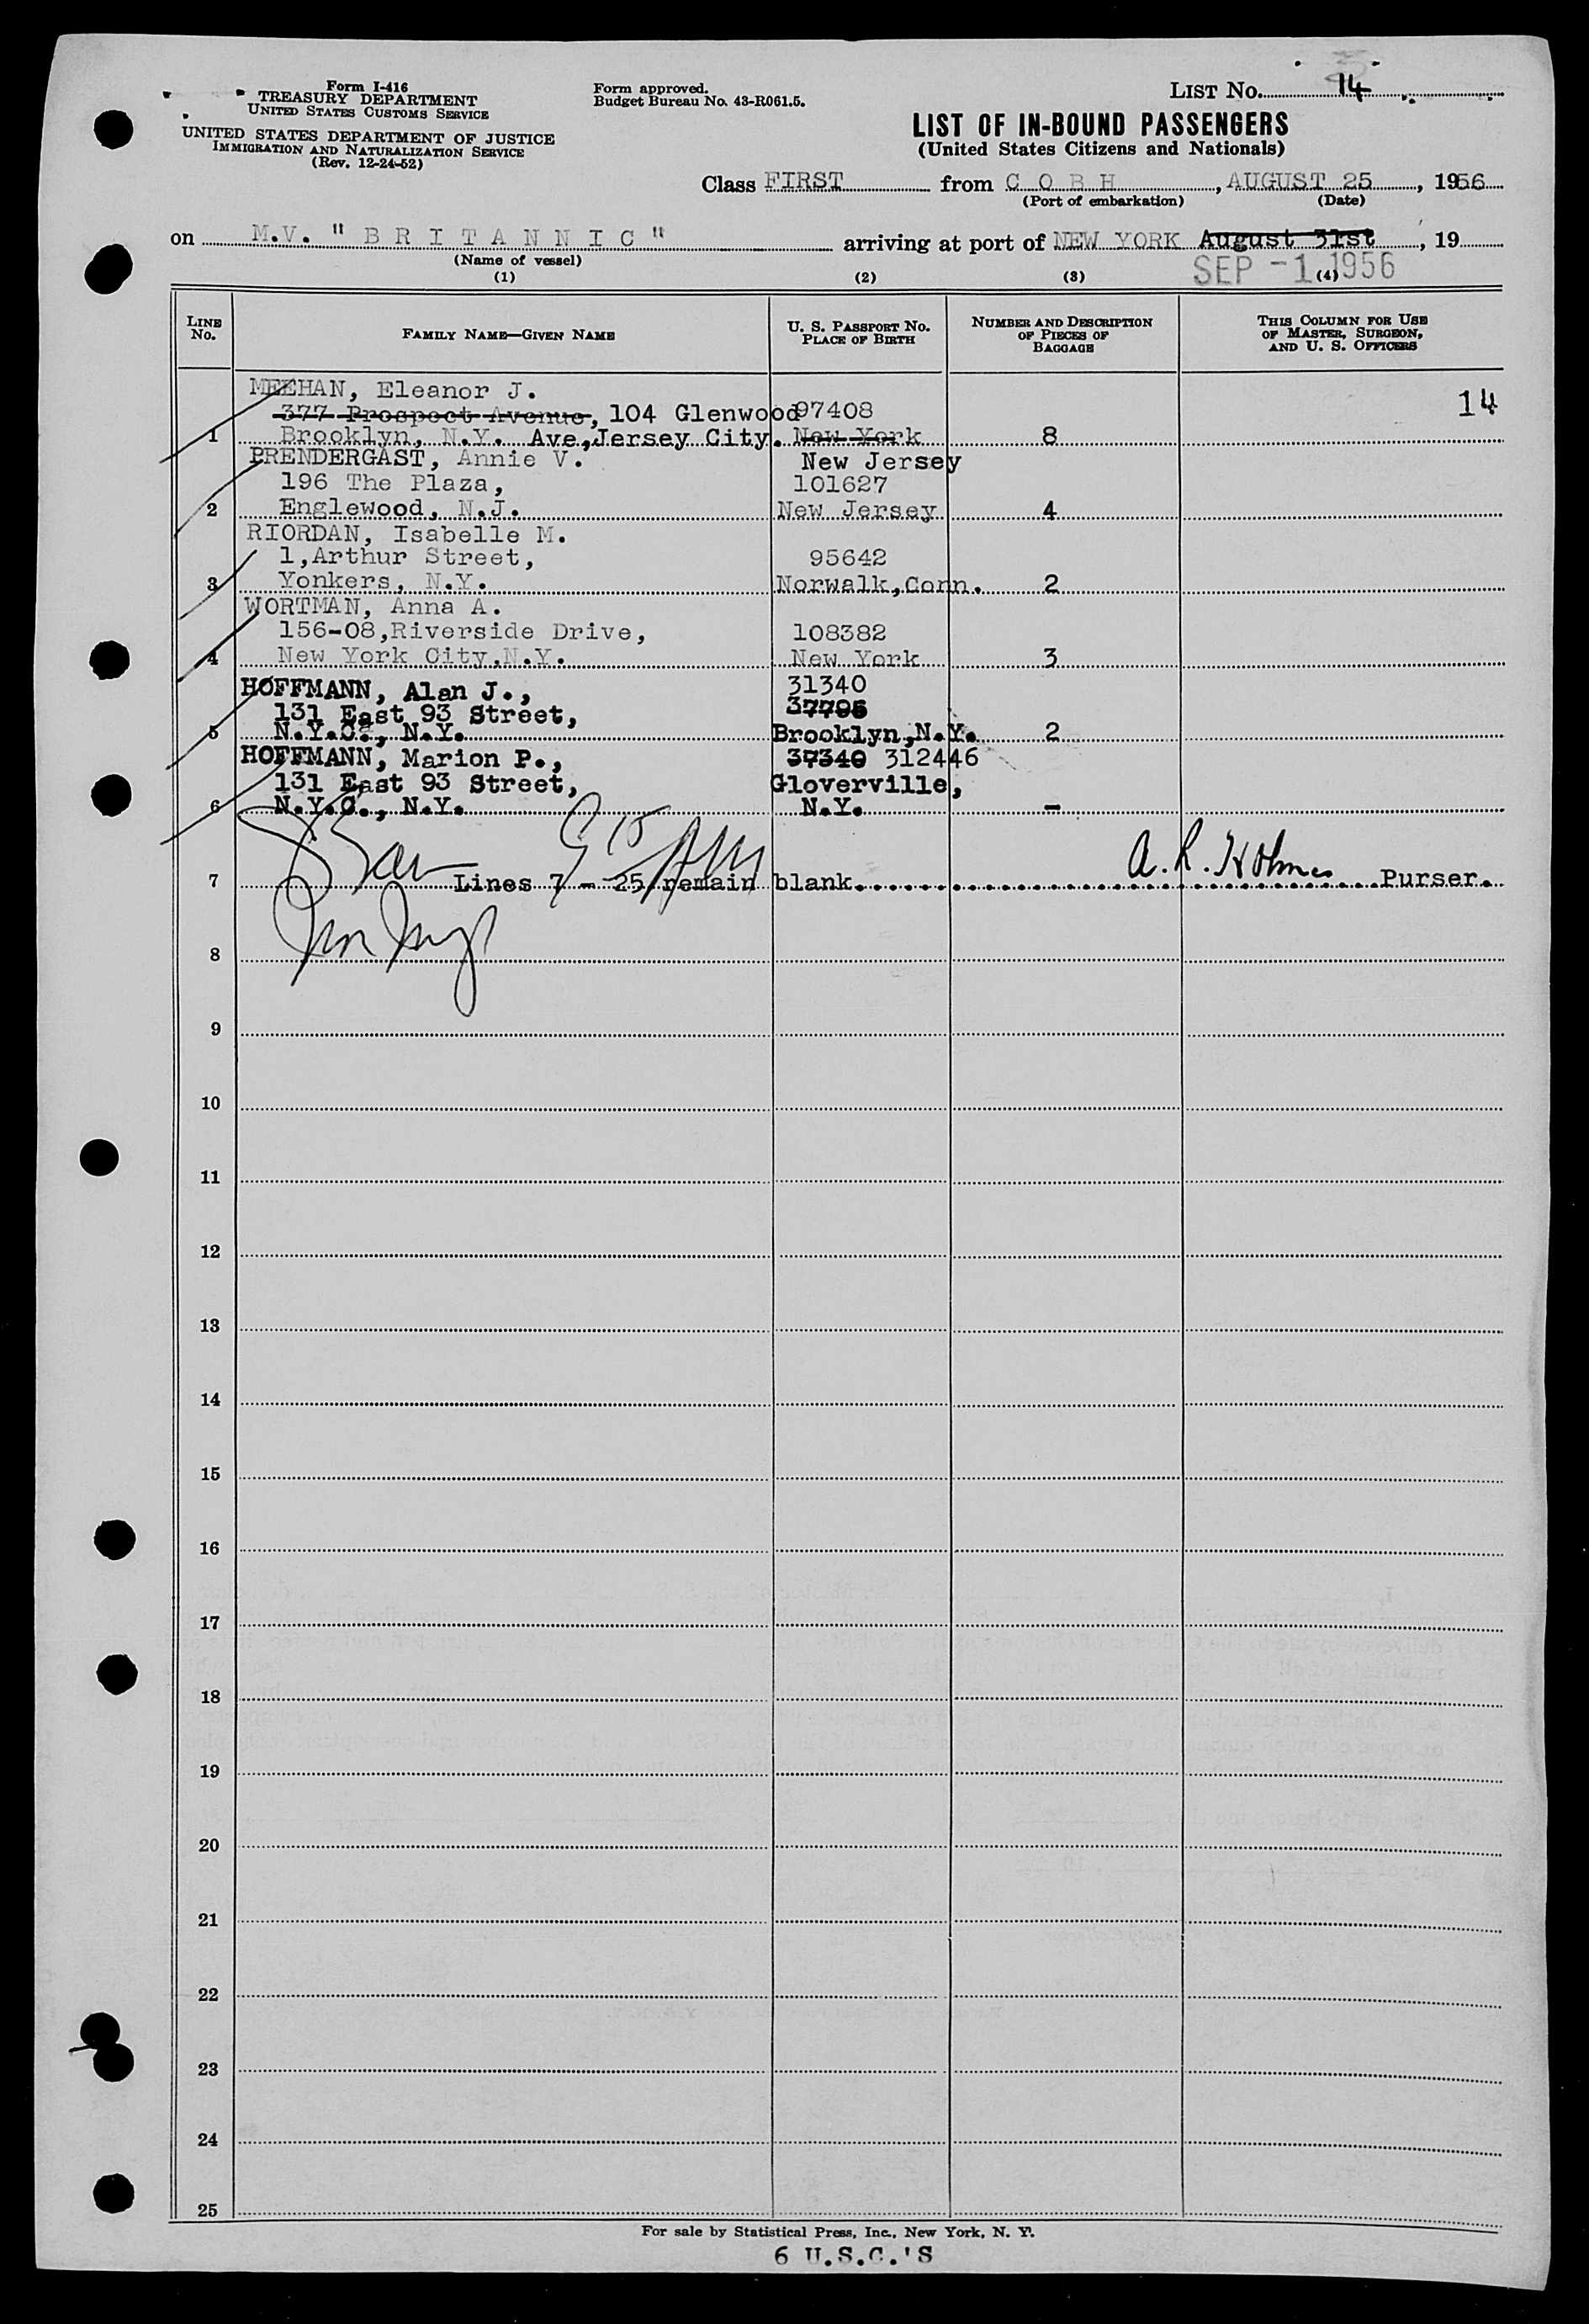 Form I-416
TREASURY DEPARTMENT
UNITED STATES CUSTOMS SERVICE
UNITED STATES DEPARTMENT OF JUSTICE
IMMIGRATION AND NATURALIZATION SERVICE
(Rev. 12-24-52)
Form approved.
Budget Bureau No. 43-R061.5.
LIST No. 14
LIST OF IN-BOUND PASSENGERS
(United States Citizens and Nationals)
Class FIRST from C O B H, AUGUST 25, 1956
(Port of embarkation) (Date)
on M.V. " B R I T A N N I C " arriving at port of NEW YORK August 31st, 19
(Name of vessel) SEP -1 1956
(1) (2) (3) (4)
LINE No. FAMILY NAME—GIVEN NAME U. S. PASSPORT No. PLACE OF BIRTH NUMBER AND DESCRIPTION OF PIECES OF BAGGAGE THIS COLUMN FOR USE OF MASTER, SURGEON, AND U. S. OFFICERS
MEEHAN, Eleanor J. 14
377 Prospect Avenue, 104 Glenwood 97408
1 Brooklyn, N.Y. Ave., Jersey City. New York 8
PRENDERGAST, Annie V. New Jersey
196 The Plaza, 101627
2 Englewood, N.J. New Jersey 4
RIORDAN, Isabelle M.
1,Arthur Street, 95642
3 Yonkers, N.Y. Norwalk,Conn. 2
WORTMAN, Anna A.
156-08,Riverside Drive, 108382
4 New York City,N.Y. New York 3
HOFFMANN, Alan J., 31340
131 East 93 Street, 37796
5 N.Y.C., N.Y. Brooklyn,N.Y. 2
HOFFMANN, Marion P., 37340 312446
131 East 93 Street, Gloverville,
6 N.Y.C., N.Y. N.Y. -
7 Lines 7 - 25 remain blank. A. R. Holmes Purser.
8
9
10
11
12
13
14
15
16
17
18
19
20
21
22
23
24
25
For sale by Statistical Press, Inc., New York, N. Y.
6 U.S.C.'S